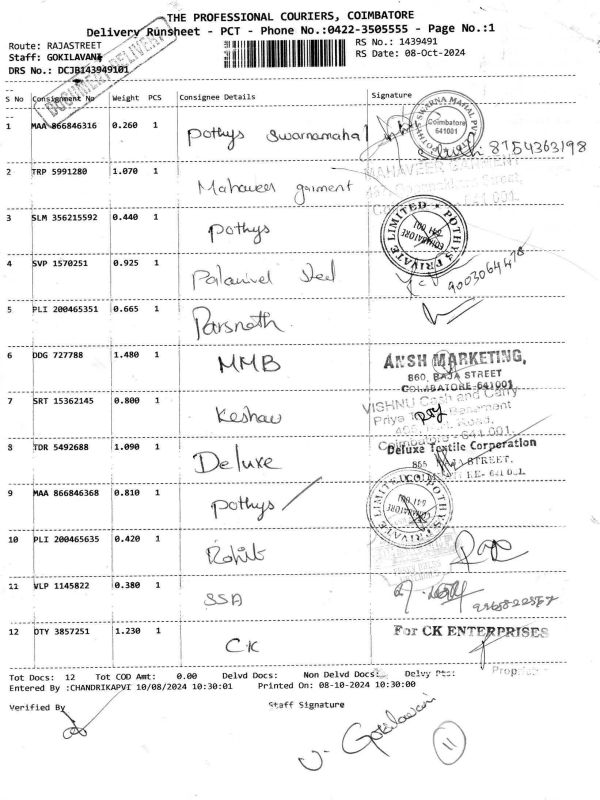 THE PROFESSIONAL COURIERS, COIMBATORE
Delivery Runsheet - PCT - Phone No.:0422-3505555 - Page No.:1
Route: RAJASTREET
RS No.: 1439491
Staff: GOKILAVANI
RS Date: 08-Oct-2024
DRS No.: DCJB143949101
S No Consignment No Weight PCS Consignee Details Signature
1 MAA 866846316 0.260 1 Pothys Swarnamahal
Coimbatore 641001
8754363198
2 TRP 5991280 1.070 1 Mahaveer garment
MAHAVEER GARMENT
3 SLM 356215592 0.440 1 Pothys
POTHYS PRIVATE LIMITED
COIMBATORE 641 001
4 SVP 1570251 0.925 1 Palanivel Steel
5 PLI 200465351 0.665 1 Parsnath
6 DDG 727788 1.480 1 MMB
ANSH MARKETING,
860, RAJA STREET
COIMBATORE-641001
7 SRT 15362145 0.800 1 Keshav
VISHNU Cash and Carry
8 TDR 5492688 1.090 1 Deluxe
Deluxe Textile Corporation
9 MAA 866846368 0.810 1 Pothys
POTHYS PRIVATE LIMITED
COIMBATORE 641 001
10 PLI 200465635 0.420 1 Rohit
11 VLP 1145822 0.380 1 SSA
12 OTY 3857251 1.230 1 CK
For CK ENTERPRISES
Tot Docs: 12 Tot COD Amt: 0.00 Delvd Docs: Non Delvd Docs: Delvy Pts:
Entered By :CHANDRIKAPVI 10/08/2024 10:30:01 Printed On: 08-10-2024 10:30:00
Verified By
Staff Signature
V. Gokilavani
11